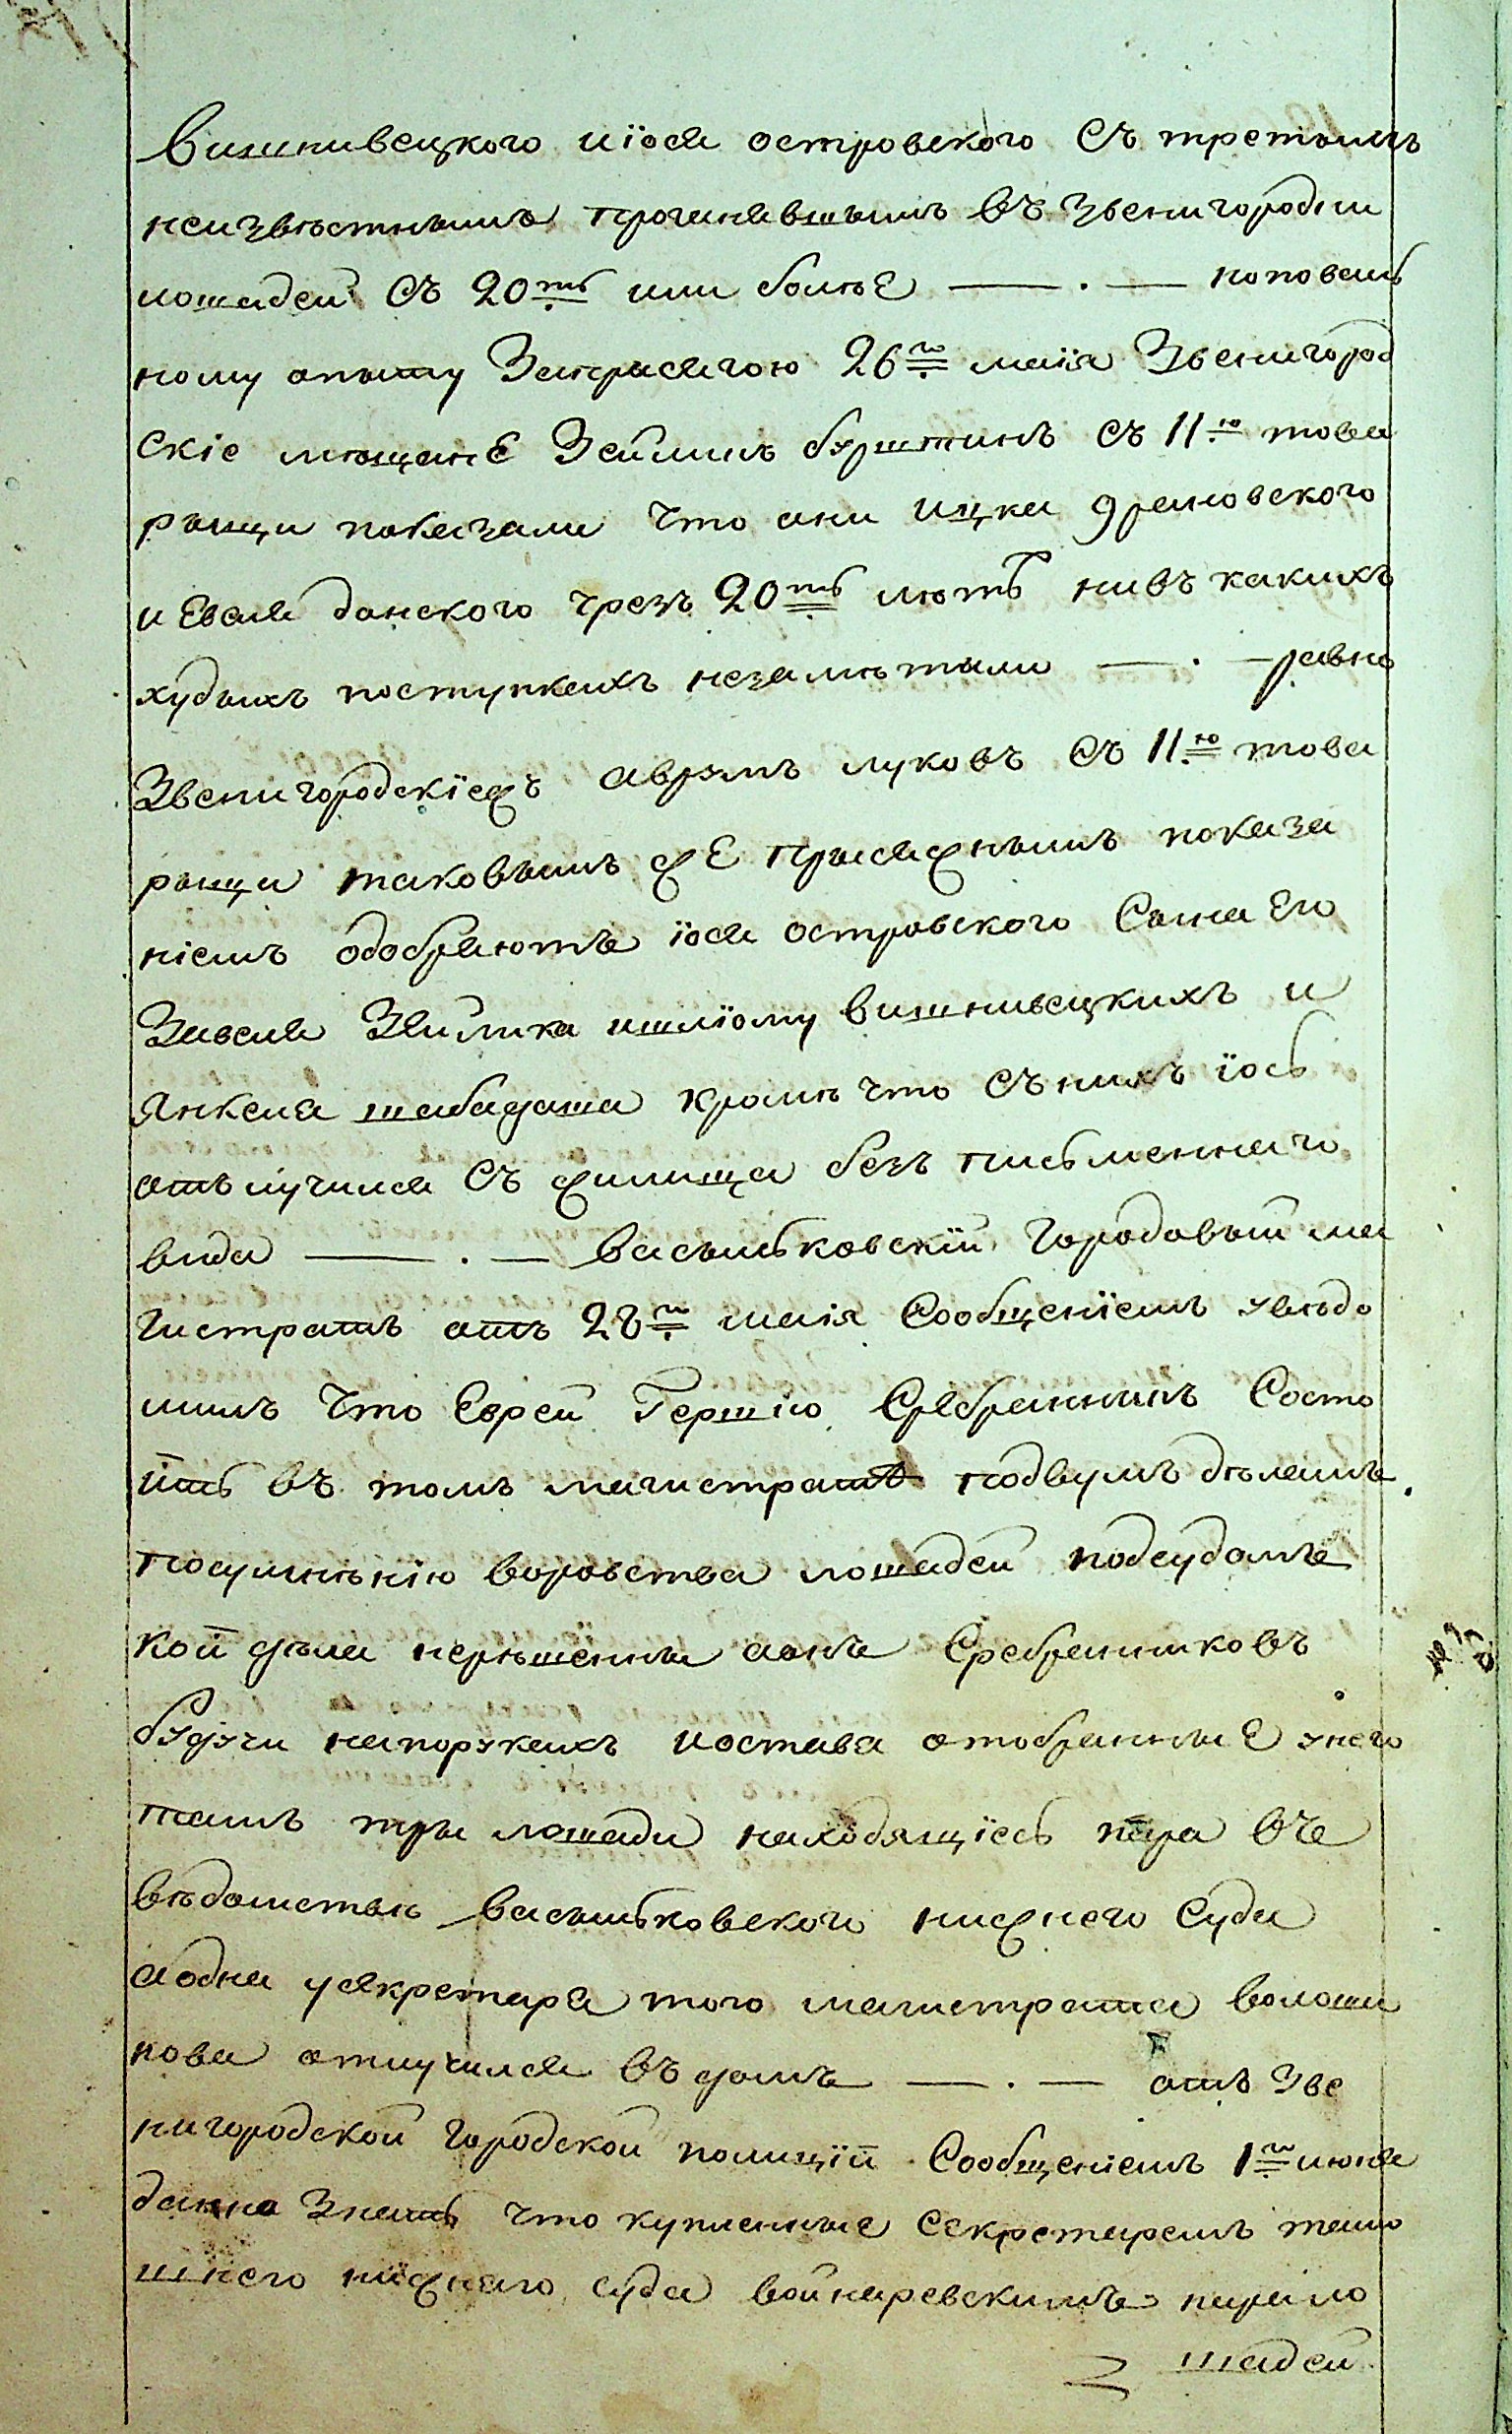 Вишнивецкого иіося островского Съ третымъ
неизвѣстнымъ прогинавшымъ въ Звенигородки
лошадей Съ 20ть или болѣе —— . — поповаль
ному опыту Заприсягою 26го маія Звенигород
Скіе мѣщане Зейликъ бурштикъ Съ 11ю това
рыщи показали что они ицка драновского
и Евеля донского чрезъ 20ть лѣтъ нивъ какихъ
худыхъ поступкахъ незамѣтыли — . — равно
Звенигородскіеж аврумъ луковъ Съ 11ю това
рыщи таковымъ же прысяжнымъ показа
ніемъ одобряютъ іося островского Сына Его
Завеля Зейлика ишліому вишнивецкихъ и
Янкеля шабадаша кромѣ что Съ нихъ іось
отълучился Съ жилища безъ письменнаго
вида —— . — Васыльковскій городовый ма
гистратъ отъ 28го маія Сообщеніемъ увѣдо
милъ что Еврей Гершко Сребранникъ Состо
итъ въ томъ магистратѣ подвумъ дѣламъ
посумнѣнію воровства лошадей подсудомъ
кой дѣла нерѣшенны аонъ Сребранниковъ
будучи напорукахъ иостава отобранные унего
тамъ тры лошади находящіесь пара въ
вѣдомствѣ Васыльковского нижнего Суда
аодна усекретара того магистрата волоши
нова отлучился въ домъ — . — отъ Зве
нигородской городской полиціи Сообщеніемъ 1го июня
данно Знать что купленные Секретаремъ тамо
шнего нижнего суда войнаревскимъ пара ло
шадей